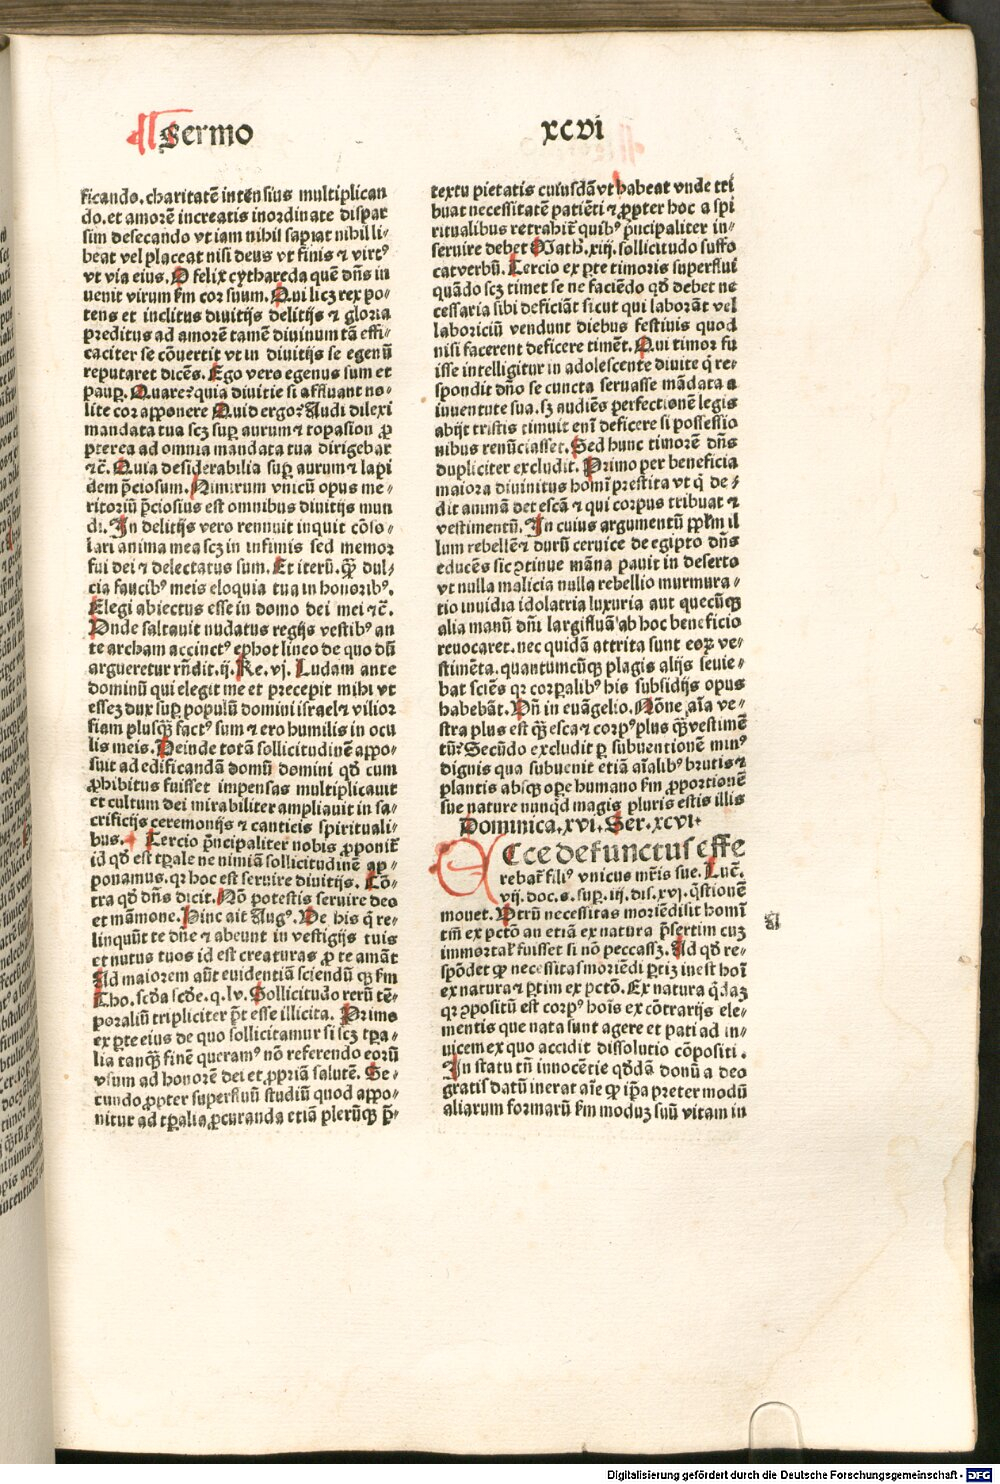 Sermo
xcvi
ficando.charitatē intensius multiplican
do.et amorē increatis inordinate dispar
sim desecando vt iam nihil sapiat nihil li⸗
beat vel placeat nisi deus vt finis ⁊ virtꝰ
vt via eius.O felix cythareda quē dn̄s in
uenit virum s̄m cor suum.Qui licꝫ rex po⸗
tens et inclitus diuitijs delitijs ⁊ gloria
preditus ad amorē tamē diuinum tā effi⸗
caciter se cōuertit vt in diuitijs se egenū
reputaret dicēs.Ego vero egenus sum et
paup̄.Quare?quia diuitie si affluant no⸗
lite cor apponere Quid ergo?Audi dilexi
mandata tua scꝫ sup̄ aurum ⁊ topasion ꝓ
pterea ad omnia mandata tua dirigebar
⁊c̄.Quia desiderabilia sup̄ aurum ⁊ lapi
dem p̄ciosum.Nimirum vnicū opus me⸗
ritoriū p̄ciosius est omnibus diuitijs mun
di.In delitijs vero rennuit inquit cōso⸗
lari anima mea scꝫ in infimis sed memor
fui dei ⁊ delectatus sum.Et iterū.q̄ꝫ dul⸗
cia faucibꝰ meis eloquia tua in honoribꝰ.
Elegi abiectus esse in domo dei mei ⁊c̄.
Vnde saltauit nudatus regijs vestibꝰ an
te archam accinctꝰ ephot lineo de quo dū
argueretur rn̄dit.ij.Re.vj.Ludam ante
dominū qui elegit me et precepit mihi vt
esseꝫ dux sup̄ populū domini israel ⁊ vilior
fiam plusq̄ꝫ factꝰ sum ⁊ ero humilis in ocu
lis meis.Deinde totā sollicitudinē appo⸗
suit ad edificandā domū domini qd̄ cum
ꝓhibitus fuisset impensas multiplicauit
et cultum dei mirabiliter ampliauit in sa⸗
crificijs ceremonijs ⁊ canticis spirituali⸗
bus. Tercio p̄ncipaliter nobis ꝓponit̄
id qd̄ est tp̄ale ne nimiā sollicitudinē ap⸗
ponamus.qꝛ hoc est seruire diuitijs. Cō⸗
tra qd̄ dn̄s dicit.Nō potestis seruire deo
et māmone.Hinc ait Augꝰ.De his q̄ re⸗
linquūt te dn̄e ⁊ abeunt in vestigijs tuis
et nutus tuos id est creaturas ꝓ te amāt
Ad maiorem aūt euidentiā sciendū qꝫ s̄m
Tho.scd̄a scd̄e.q.lv.Sollicitudo rerū tē⸗
poraliū tripliciter p̄t esse illicita. Primo
ex p̄te eius de quo sollicitamur si scꝫ tp̄a⸗
lia tanq̄ꝫ finē queramꝰ nō referendo eorū
vsum ad honorē dei et ꝓpriā salutē. Se⸗
cundo ꝓpter superfluū studiū quod appo⸗
nitur ad tp̄alia ꝓcuranda etiā plerūqꝫ p̄⸗
textu pietatis cuiusdā vt habeat vnde tri
buat necessitatē patiēti ⁊ ꝓpter hoc a spi
ritualibus retrahit̄ quibꝰ p̄ncipaliter in⸗
seruire debet Math.xiij.sollicitudo suffo
cat verbū.Tercio ex p̄te timoris superflui
quādo scꝫ timet se ne faciēdo qd̄ debet ne
cessaria sibi deficiāt sicut qui laborāt vel
laboriciū vendunt diebus festiuis quod
nisi facerent deficere timēt.Qui timor fu
isse intelligitur in adolescente diuite q̄ re⸗
spondit dn̄o se cuncta seruasse mādata a
iuuentute sua.sꝫ audiēs perfectionē legis
abijt tristis timuit eni deficere si possessio
nibus renūciasset.Sed hunc timorē dn̄s
dupliciter excludit.Primo per beneficia
maiora diuinitus homi prestita vt q̄ de⸗
dit animā det escā ⁊ qui corpus tribuat ⁊
vestimentū.In cuius argumentū pp̄lm il
lum rebellē ⁊ durū ceruice de egipto dn̄s
educēs sic ꝯtinue māna pauit in deserto
vt nulla malicia nulla rebellio murmura⸗
tio inuidia idolatria luxuria aut quecūqꝫ
alia manū dn̄i largifluā ab hoc beneficio
reuocaret.nec quidā attrita sunt eoꝝ ve⸗
stimēta.quantumcūqꝫ plagis alijs seuie⸗
bat sciēs qꝛ corp̄alibꝰ his subsidijs opus
habebāt.Vn̄ in euāgelio.Nōne aīa ve⸗
stra plus est q̄ꝫ esca ⁊ corpꝰ plus q̄ꝫ vestimē
tū?Secūdo excludit p̱ subuentionē minꝰ
dignis qua subuenit etiā aīalibꝰ brutis ⁊
plantis absqꝫ ope humano s̄m ꝓportionē
sue nature nunqd̄ magis pluris estis illis
Dominica.xvi.Ser.xcvi.
ECce defunctus effe
rebat̄ filiꝰ vnicus mr̄is sue. Luc̄.
vij.doc.s.sup̄.iij.dis.xvj.q̄stionē
mouet.Vtrū necessitas moriēdi sit homī
tm̄ ex pctō an etiā ex natura p̄sertim cuꝫ
immortal̄ fuisset si nō peccasꝫ.Ad qd̄ re⸗
spōdet qꝫ necessitas moriēdi p̱tiꝫ inest hoī
ex natura ⁊ p̱tim ex pctō. Ex natura q̄daꝫ
qꝛ ꝯpositū est corpꝰ hoīs ex cōtrarijs ele⸗
mentis que nata sunt agere et pati ad in⸗
uicem ex quo accidit dissolutio cōpositi.
In statu tn̄ innocētie qd̄dā donū a deo
gratis datū inerat aīe qꝫ ip̄a preter modū
aliarum formarū s̄m moduꝫ suū vitam in